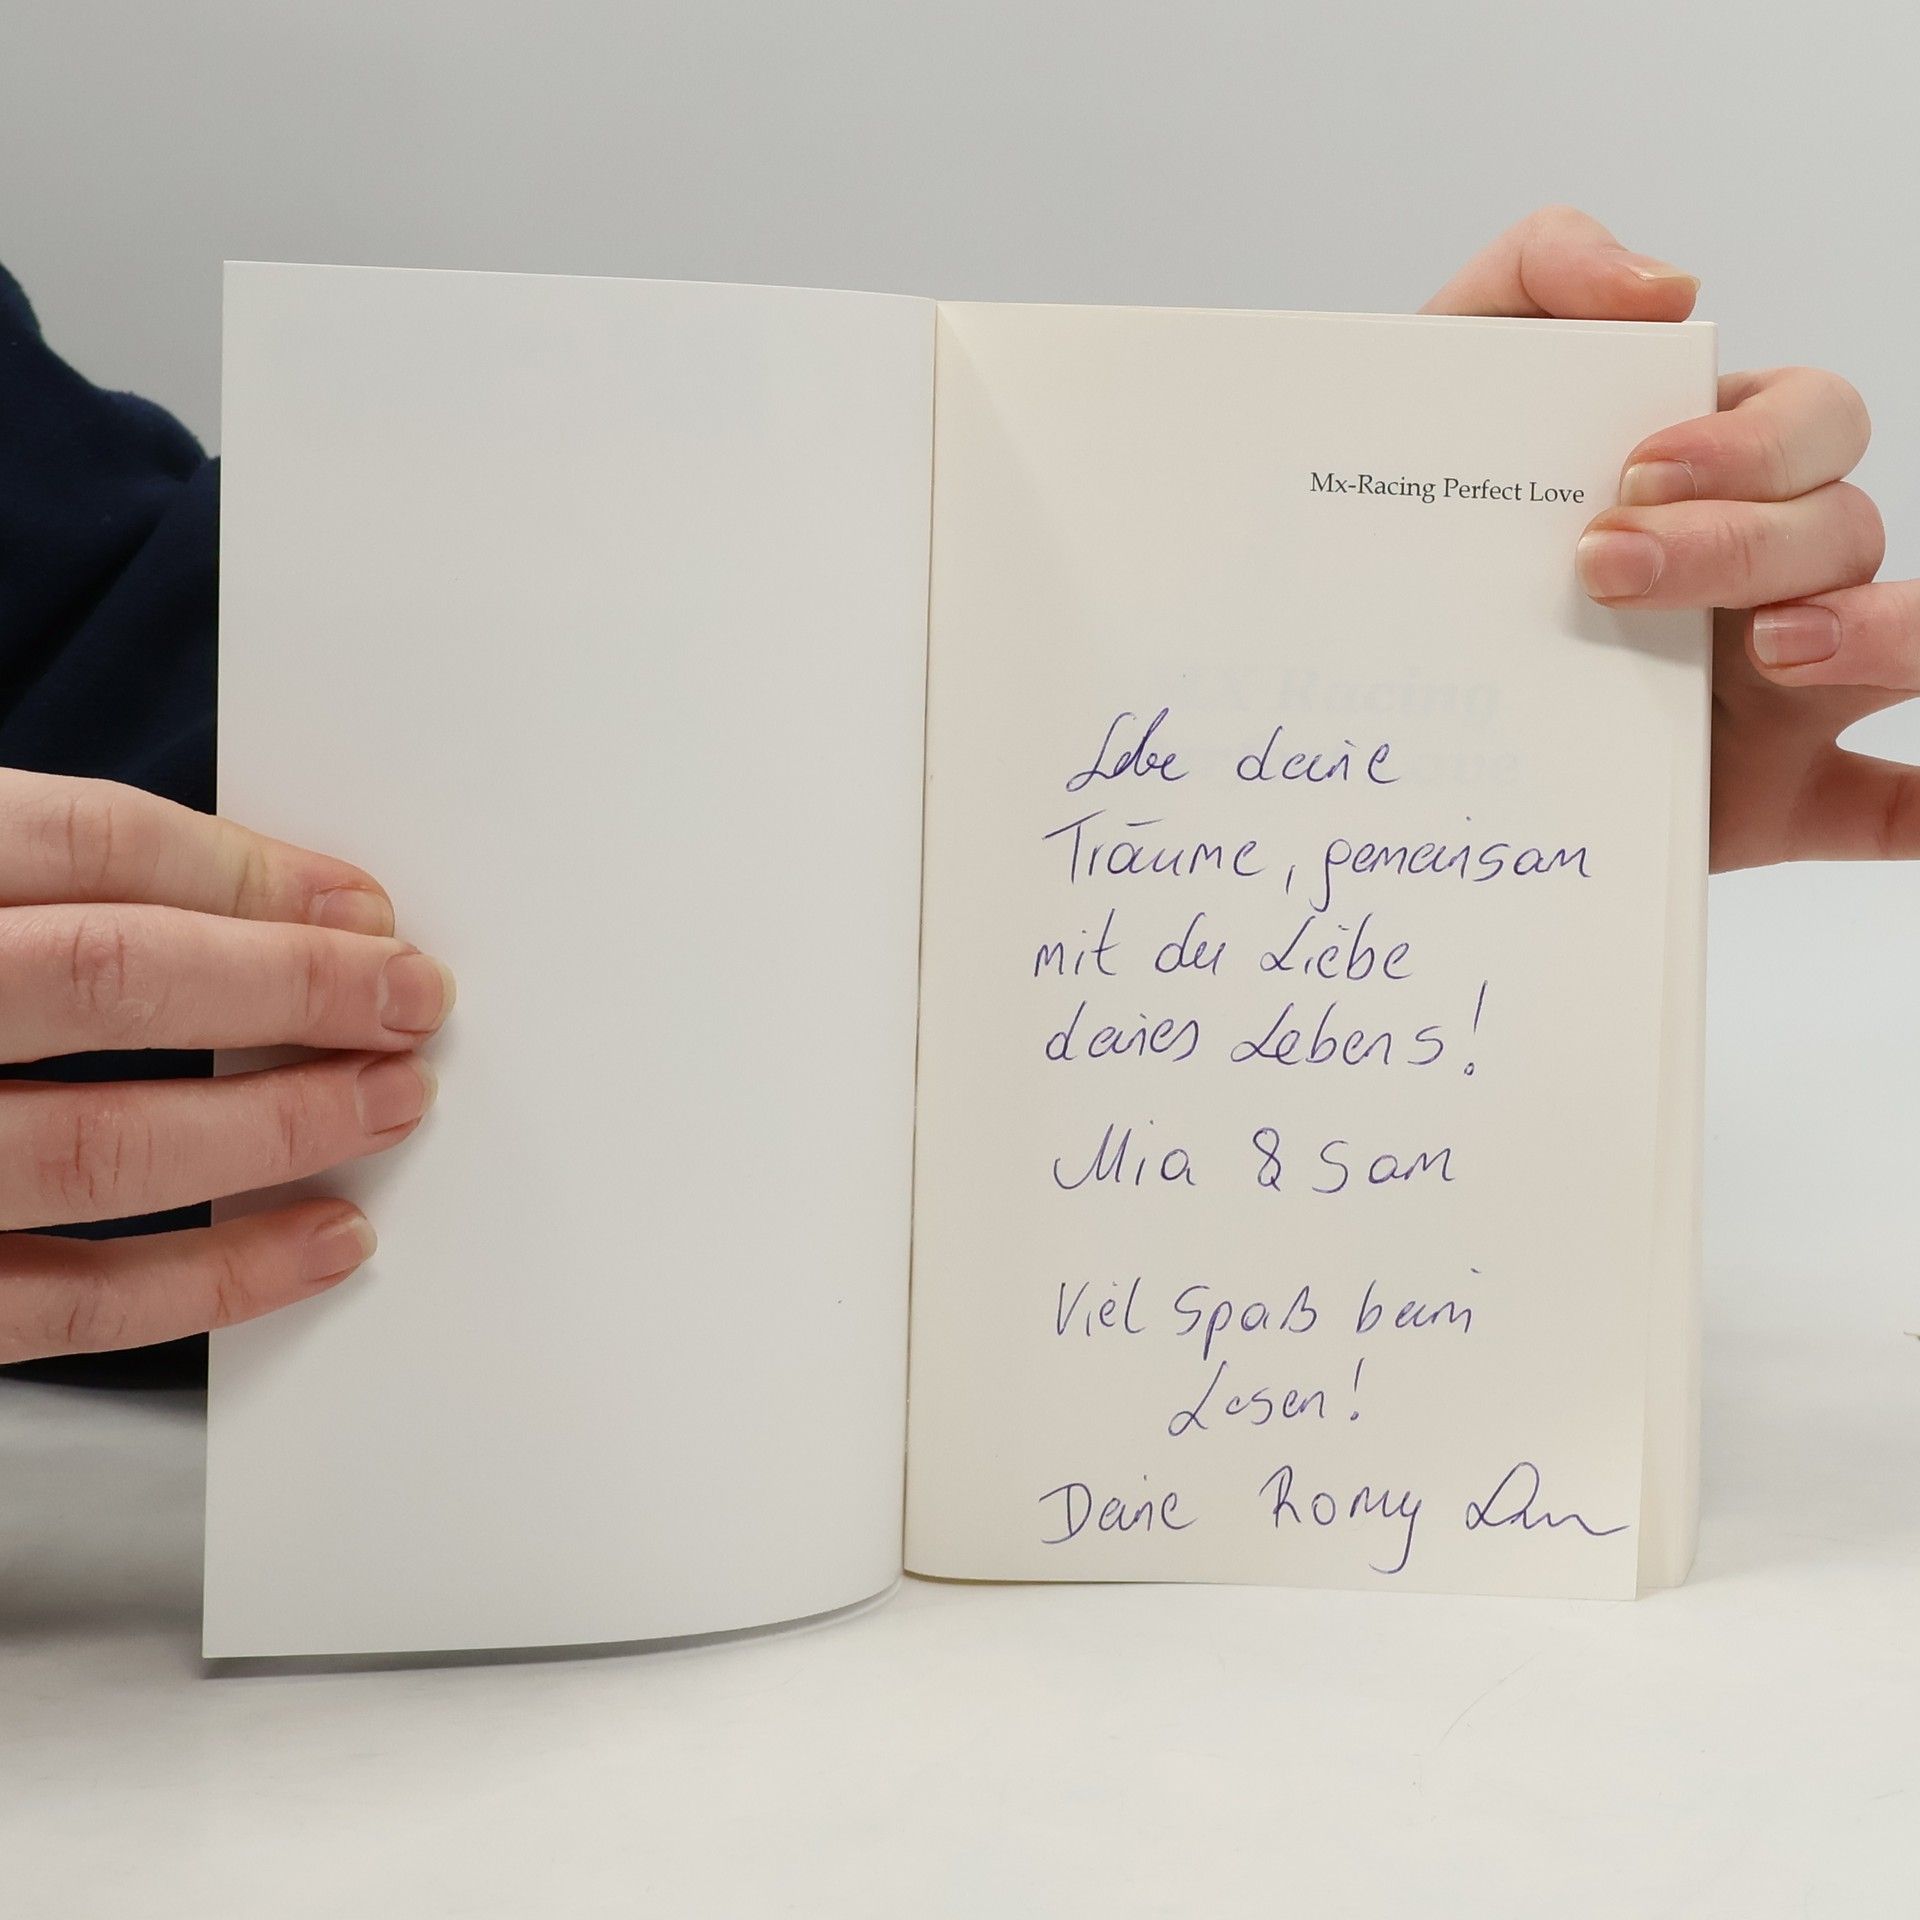 Mx-Racing Perfect Love
MX Racing
Lebe deine
Träume, gemeinsam
mit der Liebe
deines Lebens!
Mia & Sam
Viel Spaß beim
Lesen!
Deine Romy